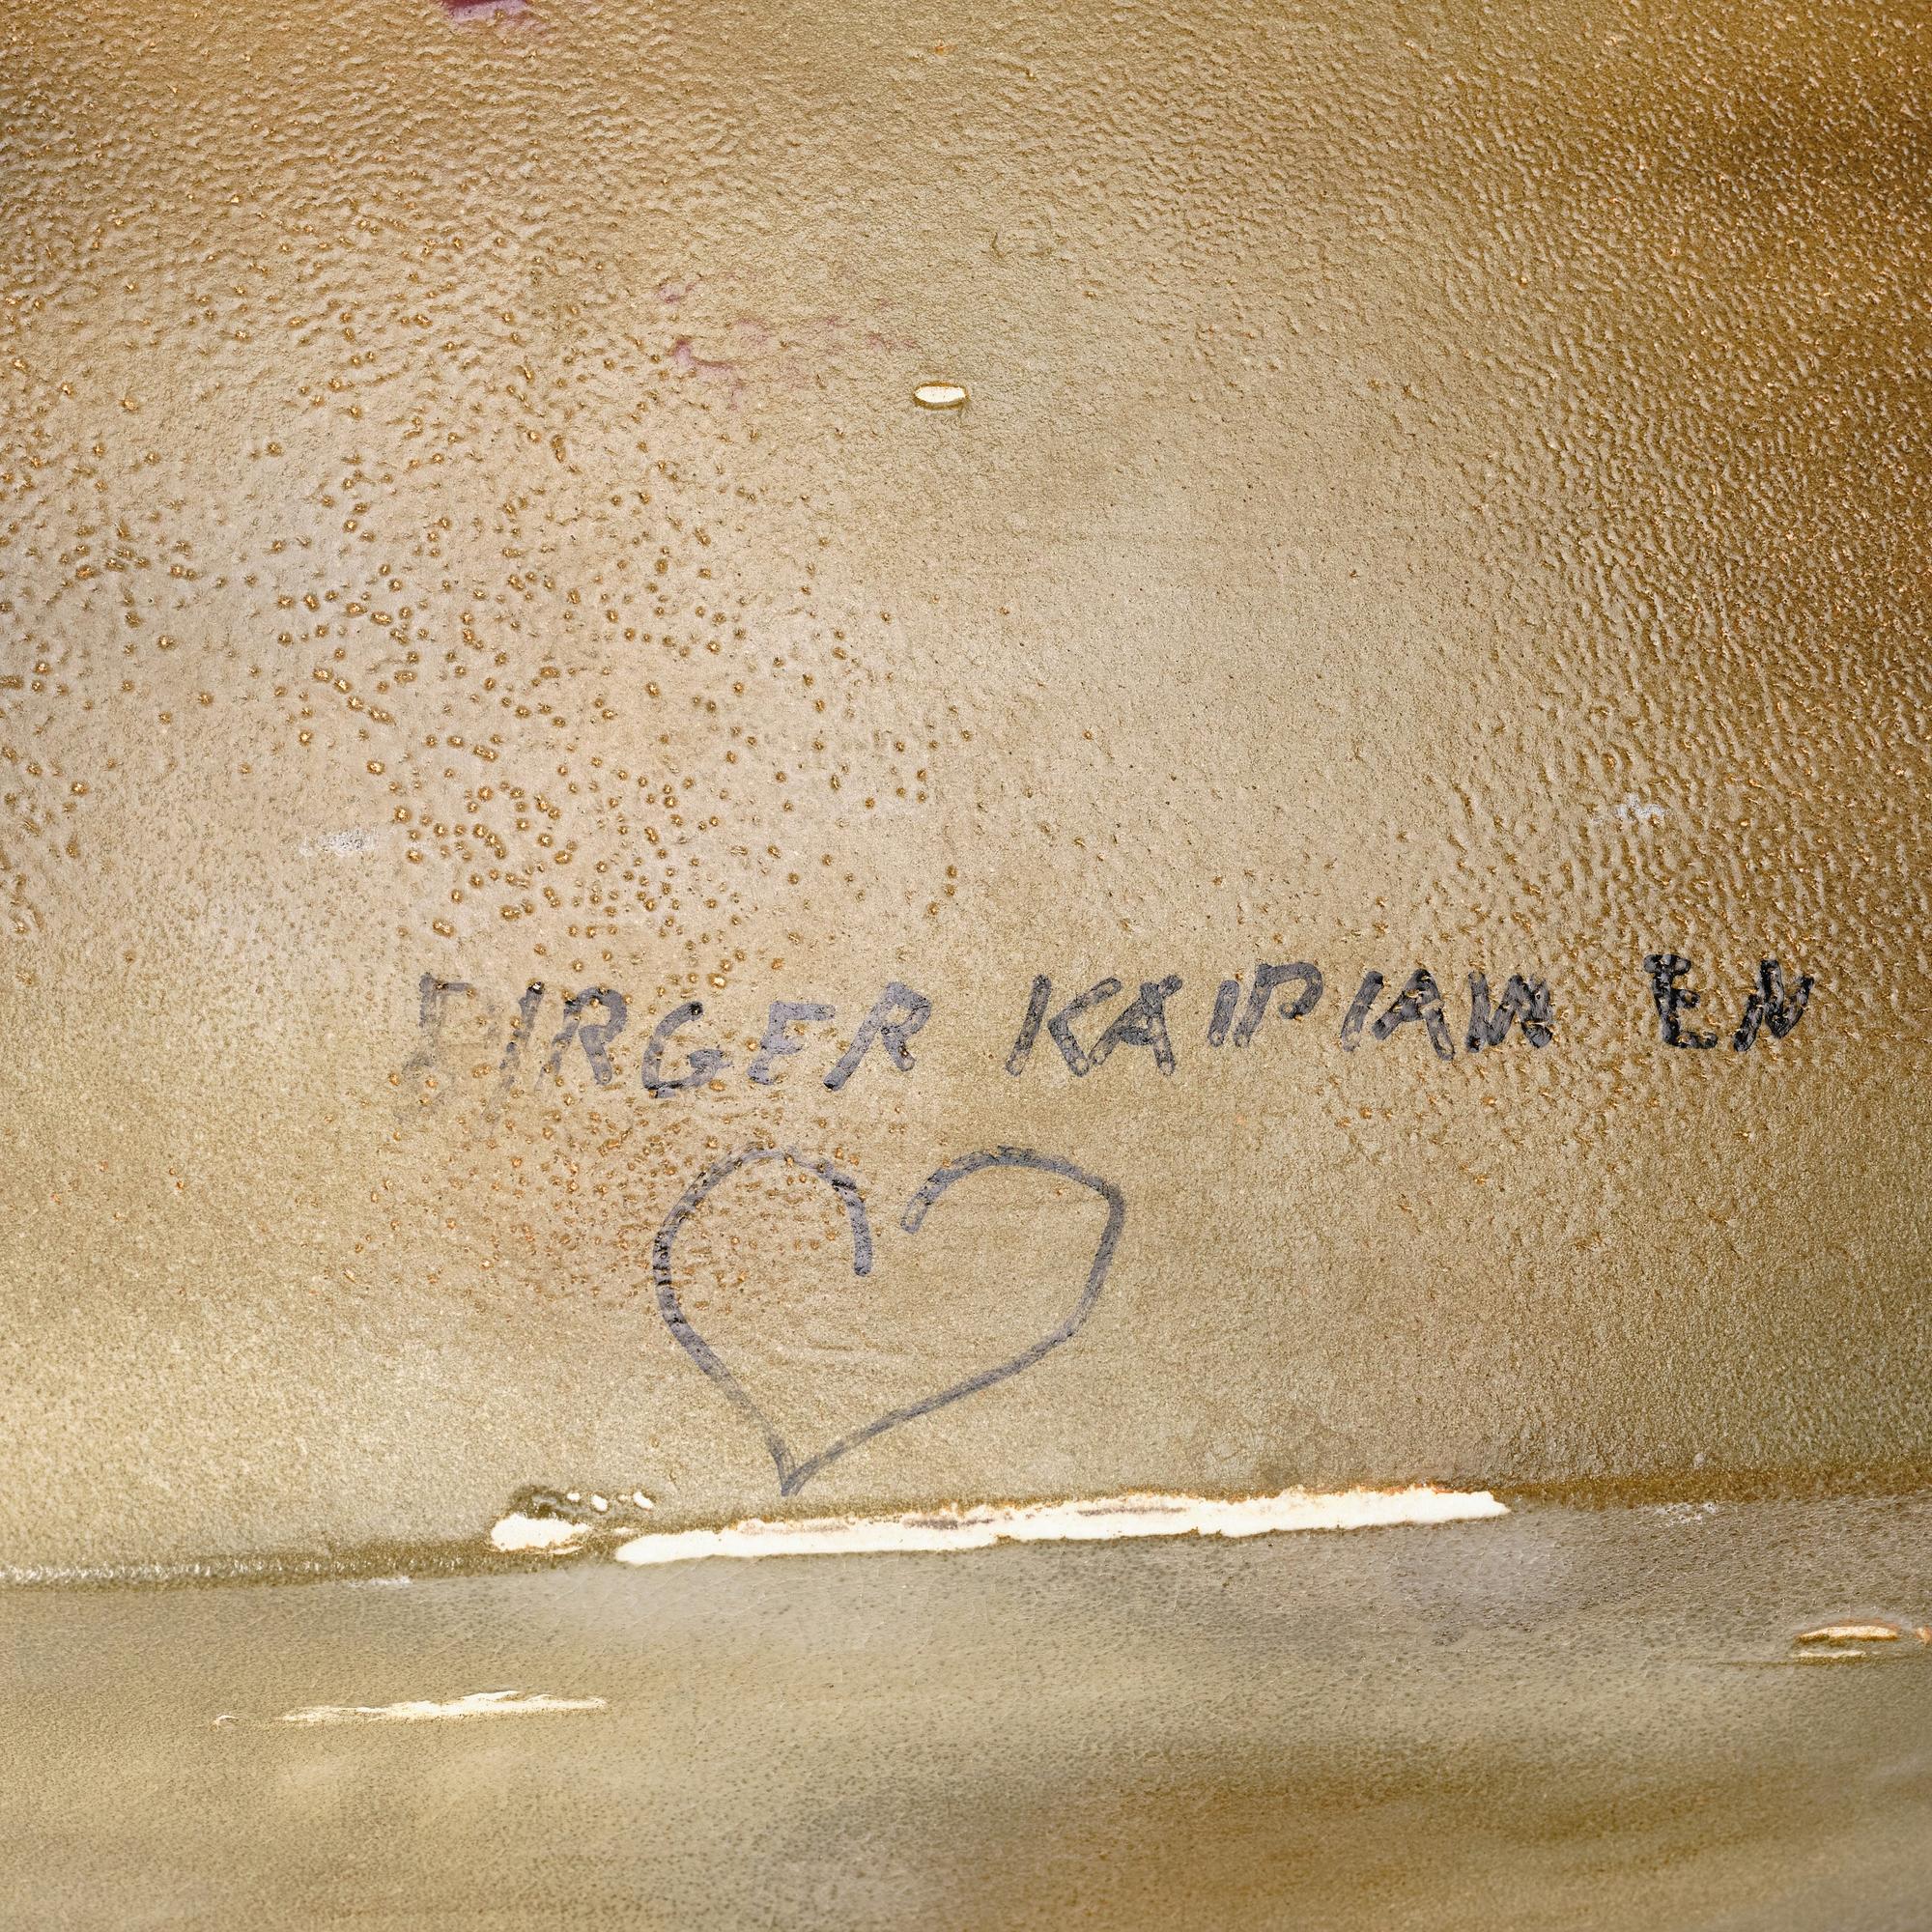 BIRGER KAIPIAINEN